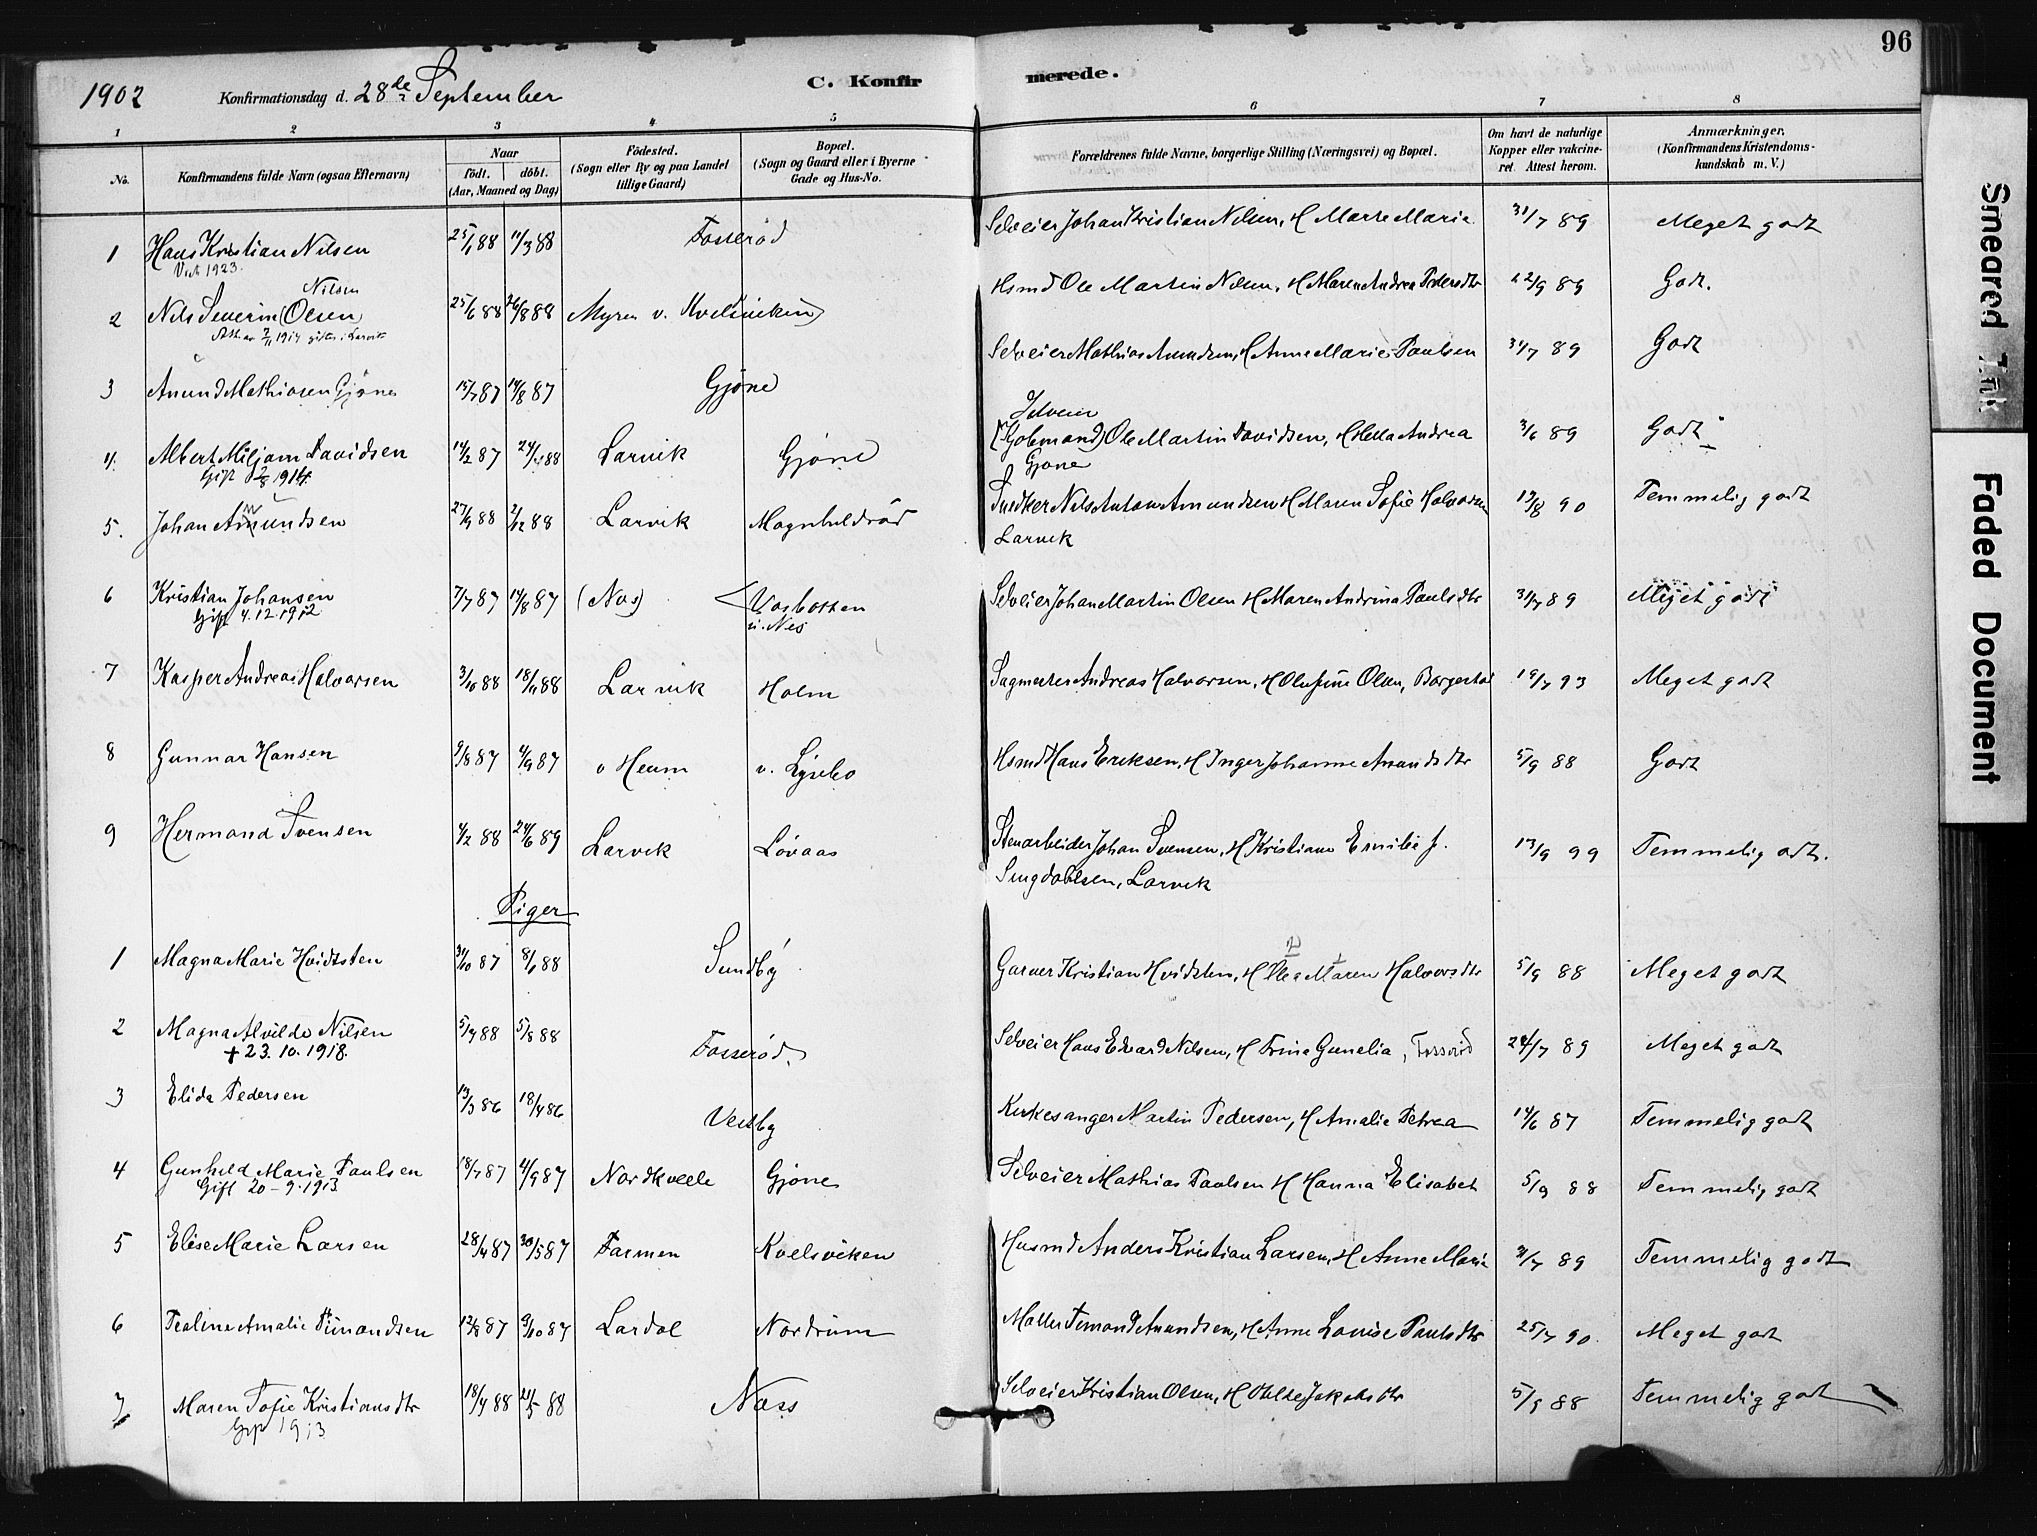 96
1902 Konfirmationsdag d. 28de September
C. Konfirmerede.
1 2 3 4 5 6 7 8
No. Konfirmandens fulde Navn (ogsaa Efternavn)
Naar
født. døbt.
(Aar, Maaned og Dag)
Fødested.
(Sogn eller By og paa Landet
tillige Gaard)
Bopæl.
(Sogn og Gaard eller i Byerne
Gade og Hus-No.
Forældrenes fulde Navne, borgerlige Stilling (Næringsvei) og Bopæl.
Om havt de naturlige
Kopper eller vakcine-
ret. Attest herom.
Anmærkninger.
(Konfirmandens Kristendoms-
kundskab m. V.)
1 Hans Kristian Nilsen 25/1 88 11/3 88 Fosserød Selveier Johan Kristian Nilsen, H Marte Marie 31/7 89 Meget godt
1923.
Nilsen
2 Nils Severin (Olsen) 25/6 88 26/8 88 Myren v. Kvelsviken Hsmd Ole Martin Nilsen, H Maren Andrea Pedersdtr 22/9 89 Godt.
1914 gift i Larvik
3 Anund Mathiasen Gjøne 15/7 87 14/8 87 Gjøne Selveier Mathias Anundsen, H Anne Marie Paulsen 31/7 89 Godt
Selveier
4. Albert Miljam Davidsen 14/2 87 24/4 88 Larvik Gjøne Ole Martin Davidsen, H Hella Andrea 3/6 89 Godt
Gift 2/8 1914. Gjøne
5. Johan Amundsen 27/9 88 2/12 88 Larvik Magnhildrød Snedker Nils Anton Amundsen H Maren Sofie Halvorsen 19/8 90 Temmelig godt
Larvik
6 Kristian Johansen 7/7 87 14/8 87 (Nes) Vasbotten Selveier Johan Martin Olsen H Maren Andrina Paulsdtr 31/7 89 Meget godt
Gift 4.12.1912 u. Nes
7 Kasper Andreas Halvorsen 3/10 88 18/11 88 Larvik Holm Sagmester Andreas Halvorsen, H Olufine Olsen, 19/7 93 Meget godt
8 Gunnar Hansen 9/8 87 4/9 87 v Heum v. Lysebo Hsmd Hans Eriksen, H Inger Johanne Anundsdtr 5/9 88 Godt
9 Hermand Svensen 4/2 88 24/6 89 Larvik Løvaas Stenarbeider Johan Svensen, H Kristiane Emilie f. 13/9 99 Temmelig godt.
Larvik
Piger
1 Magna Marie Hvidtsten 31/10 87 8/1 88 Sundby Garver Kristian Hvidsten, H Maren Halvorsdtr 5/9 88 Meget godt
2 Magna Alvilde Nilsen 5/7 88 5/8 88 Fosserød. Selveier Hans Edvard Nilsen, H Trine Gunelia, Fosserød 24/7 89 Meget godt
+ 23.10.1918.
3 Elida Pedersen 13/3 86 18/4 86 Vestby Kirkesanger Martin Pedersen, H Amalie Petrea 14/6 87 Temmelig godt
4 Gunhild Marie Paulsen 18/7 87 4/9 87 Nordkvelle Gjøne Selveier Mathias Paulsen H Hanna Elisabet 5/9 88 Temmelig godt
Gift 20-9-1913
5 Elise Marie Larsen 28/4 87 30/5 87 Farmen Kvelsviken Husmd Anders Kristian Larsen, H Anne Marie 31/7 89 Temmelig godt
6 Tealine Amalie Timandsen 12/8 87 9/10 87 Lardal Nordrum Møller Timand Anundsen, H Anne Louise Paulsdtr 25/7 90. Meget godt
7 Maren Sofie Kristiansdtr 18/4 88 21/5 88 Næss Selveier Kristian Olsen, H Jakobsdtr 5/9 88 Temmelig godt
Gift 1913
Smeared Ink
Faded Document